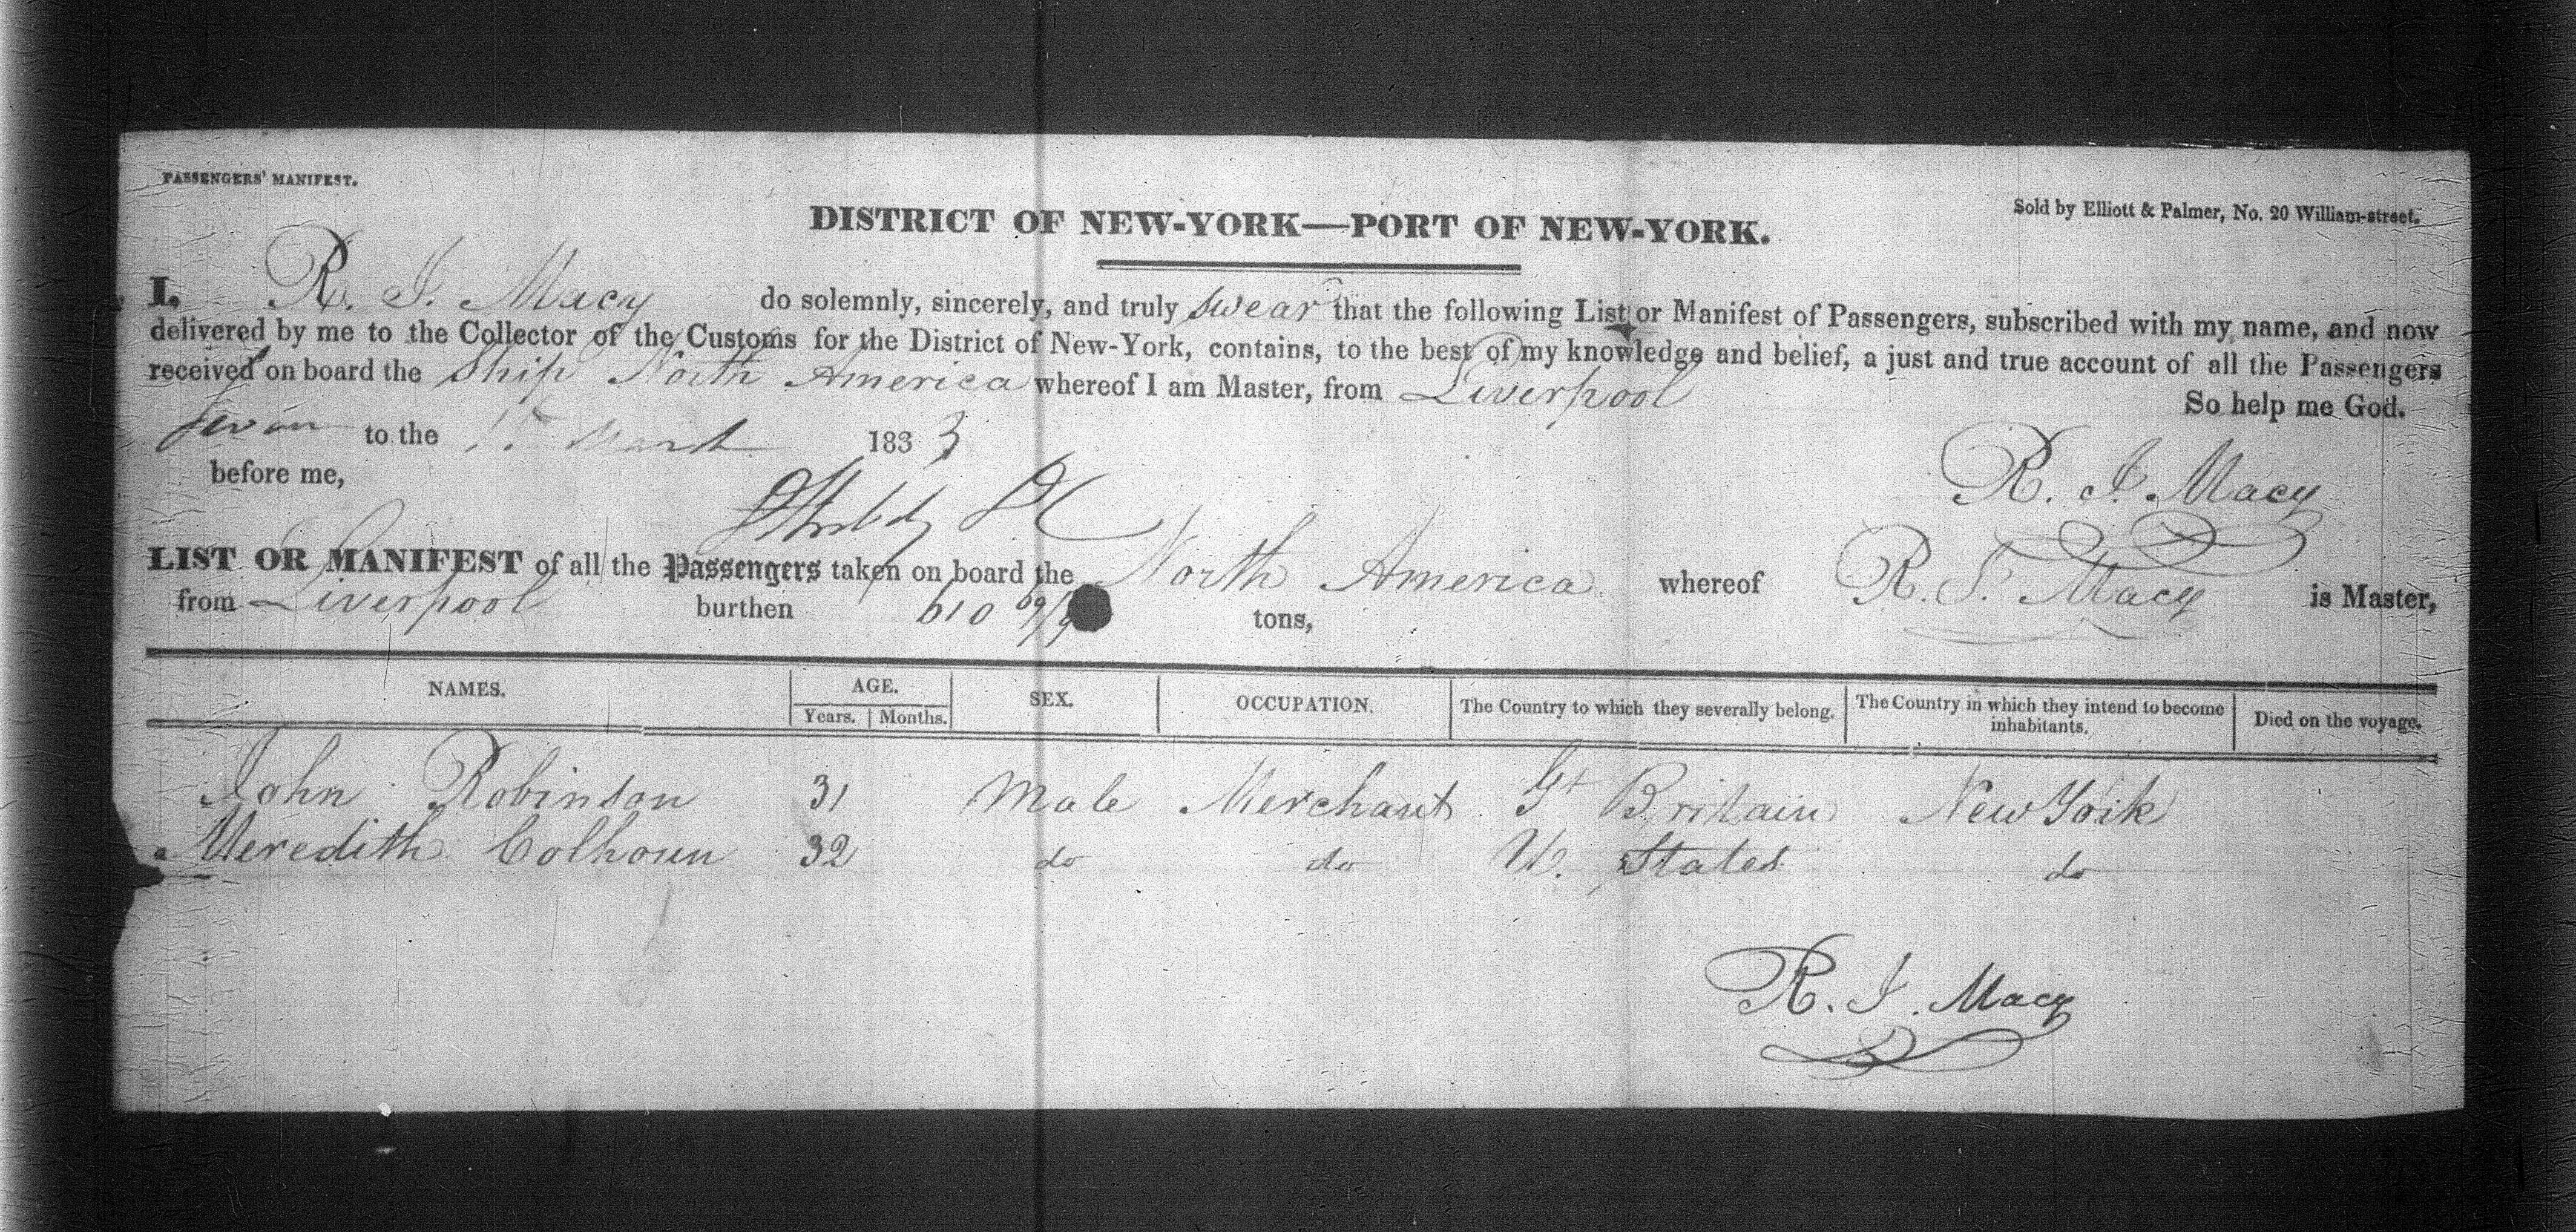 PASSENGERS' MANIFEST.
Sold by Elliott & Palmer, No. 20 William-street.
DISTRICT OF NEW-YORK—PORT OF NEW-YORK.
I, R. J. Macy do solemnly, sincerely, and truly swear that the following List or Manifest of Passengers, subscribed with my name, and now
delivered by me to the Collector of the Customs for the District of New-York, contains, to the best of my knowledge and belief, a just and true account of all the Passengers
received on board the Ship North America whereof I am Master, from Liverpool
So help me God.
Sworn to the March 1833
R. J. Macy
before me,
LIST OR MANIFEST of all the Passengers taken on board the North America whereof R. J. Macy is Master,
from Liverpool burthen 610 tons,
NAMES. AGE. SEX. OCCUPATION. The Country to which they severally belong. The Country in which they intend to become inhabitants. Died on the voyage.
Years. Months.
John Robinson 31 Male Merchant Gt Britain New York
Meredith Colhoun 32 do do U. States do
R. J. Macy